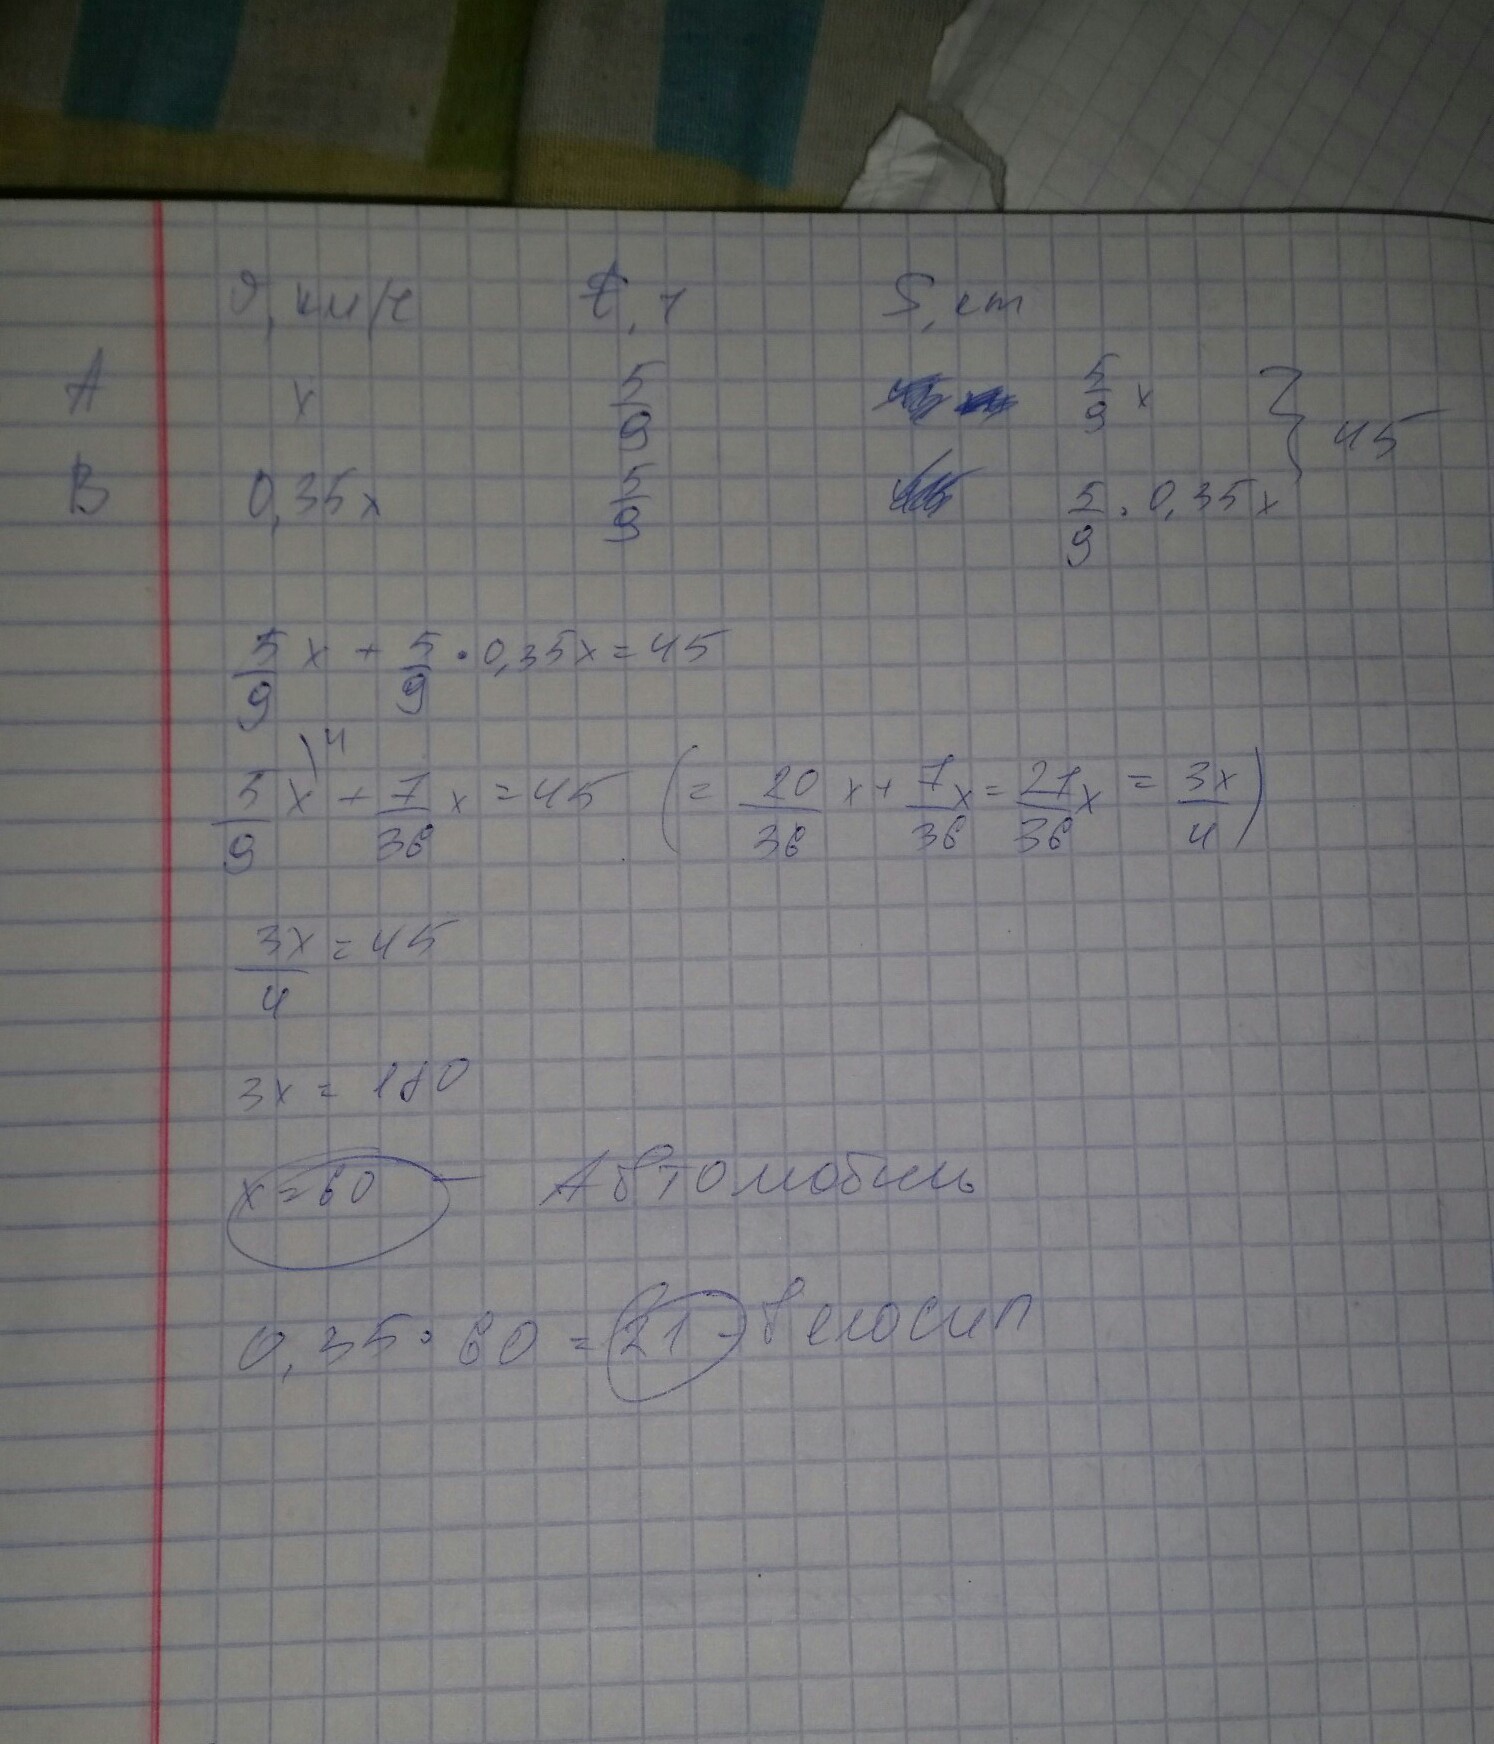 υ, км/ч t, ч S, км
А x 5/9 5/9 x } 45
В 0,35x 5/9 5/9 · 0,35x
5/9 x + 5/9 · 0,35x = 45
5/9 x \4 + 7/36 x = 45 (= 20/36 x + 7/36 x = 27/36 x = 3x/4)
3x/4 = 45
3x = 180
x = 60 – Автомобиль
0,35 · 60 = 21 – велосип